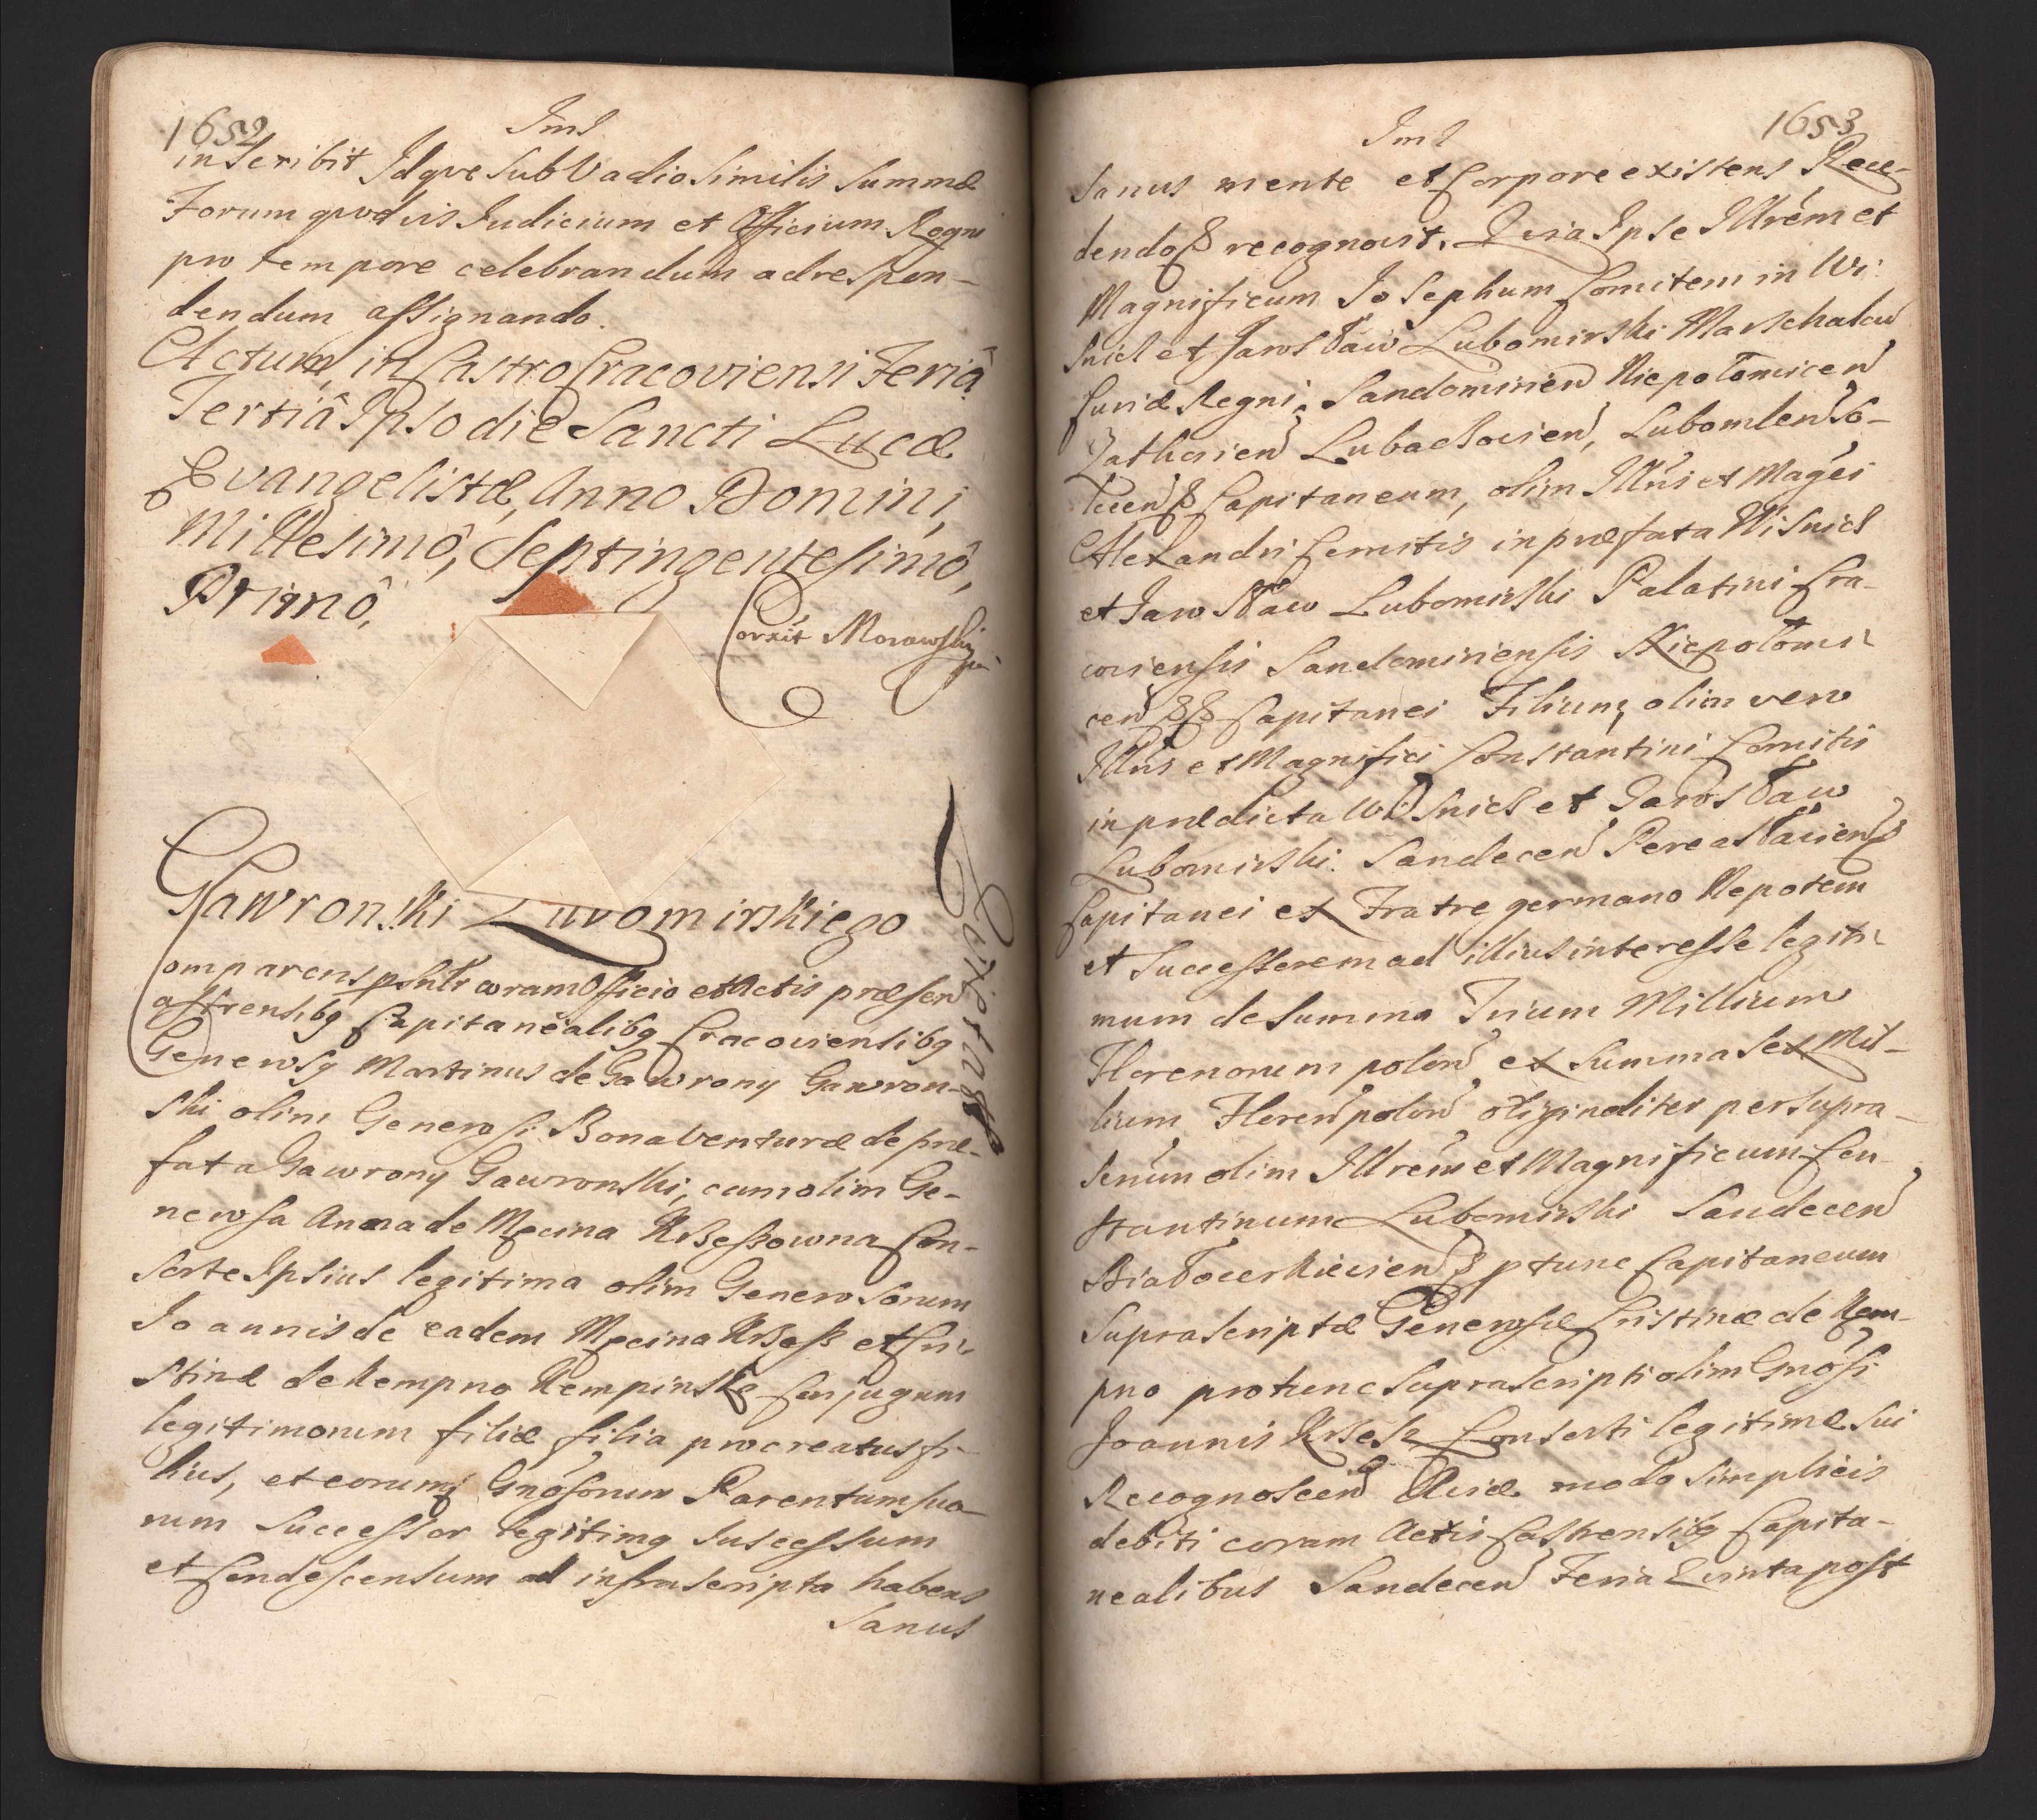 1652
Iml
inscribit Idque Sub Vadio Similis Summæ
Forum quodvis Judicium et Officium Regni
pro tempore celebrandum ad respon-
dendum assignando.
Actum, in Castro Cracoviensi Feriâ
Tertiâ Ipso die Sancti Lucæ
Evangelistæ, Anno Domini,
Millesimô, Septingentesimô,
Primô,
Corxit Morawski
Gawronski Lubomirskiego
Quietatio
Comparens psntr coram Officio et Actis præsen
astrensibq Capitanealibq Cracoviensibq
Generosq Martinus de Gawrony Gawron-
ski olim Generosi Bonaventuræ de præ-
fata Gawrony Gawronski, cum olim Ge-
nerosa Anna de Mecina Krzeszowna Con-
sorte Ipsius legitima olim Generosorum
Joannis de eadem Mecina Krzesz et Cri-
stinæ de Kempno Kempinska Conjugum
legitimorum filiæ filia procreatus fi-
lius, et eorumq Gnosorum Parentum suo-
rum Successor legitimq Successum
et Condescensum ad infrascripta habens
Sanus
1653
Iml
Sanus mente et Corpore existens Rece-
dendoß recognovit. Quia Ipse Illrem et
Magnificum Josephum Comitem in Wi-
snicz et Jarosław Lubomirski Marschalcu
Curiæ Regni, Sandomirien Niepołomicen
Zathorien Lubaczovien, Lubomlen So-
lecen Capitaneum, olim Illris et Magci
Alexandri Comitis in præfata Wisnicz
et Jarosław Lubomirski Palatini Cra-
coviensis Sandomiriensis Niepołomi-
cen Capitanei Filium, olim vero
Illris et Magnifici Constantini Comitis
in prædicta Wisnicz et Jarosław
Lubomirski Sandecen Pereasławien
Capitanei ex Fratre germano Nepotem
et Successorem ad illius interesse legiti-
mum de Summa Trium Millium
Florenorum polon ex Summa sex Mil-
lium Floren polon originaliter per supra-
senum olim Illrem et Magnificum Con-
stantinum Lubomirski Sandecen
Białocerkievien ptunc Capitaneum
Suprascriptæ Generosæ Cristinæ de Kem-
pno protunc Suprascripti olim Gnosi
Joannis Krzesz Consorti legitimæ Sui
Recognoscen Civiæ modo Simplicis
debiti coram Actis Castrensibq Capita-
nealibus Sandecen Feria Quinta post